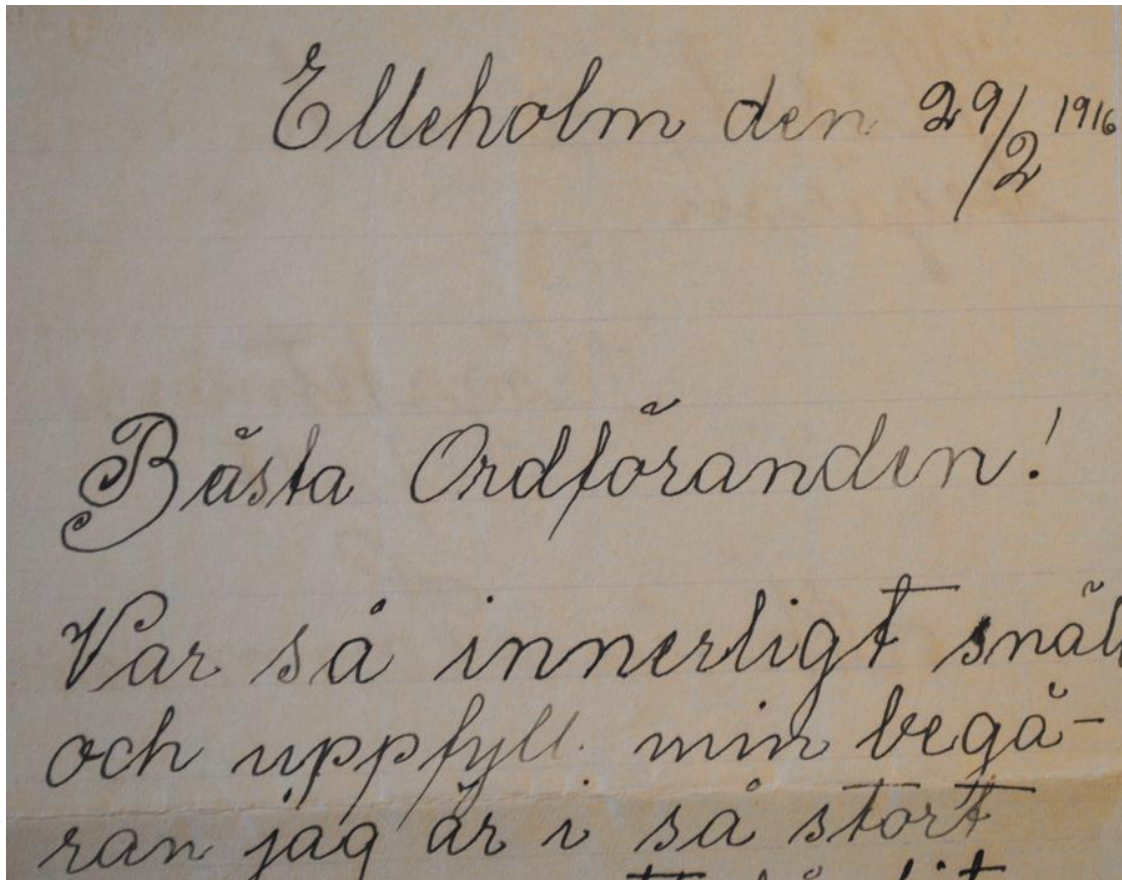 Elleholm den 29/2 1916
Bästa Ordföranden!
Var så innerligt snäll
och uppfyll min begä-
ran jag är i så stort